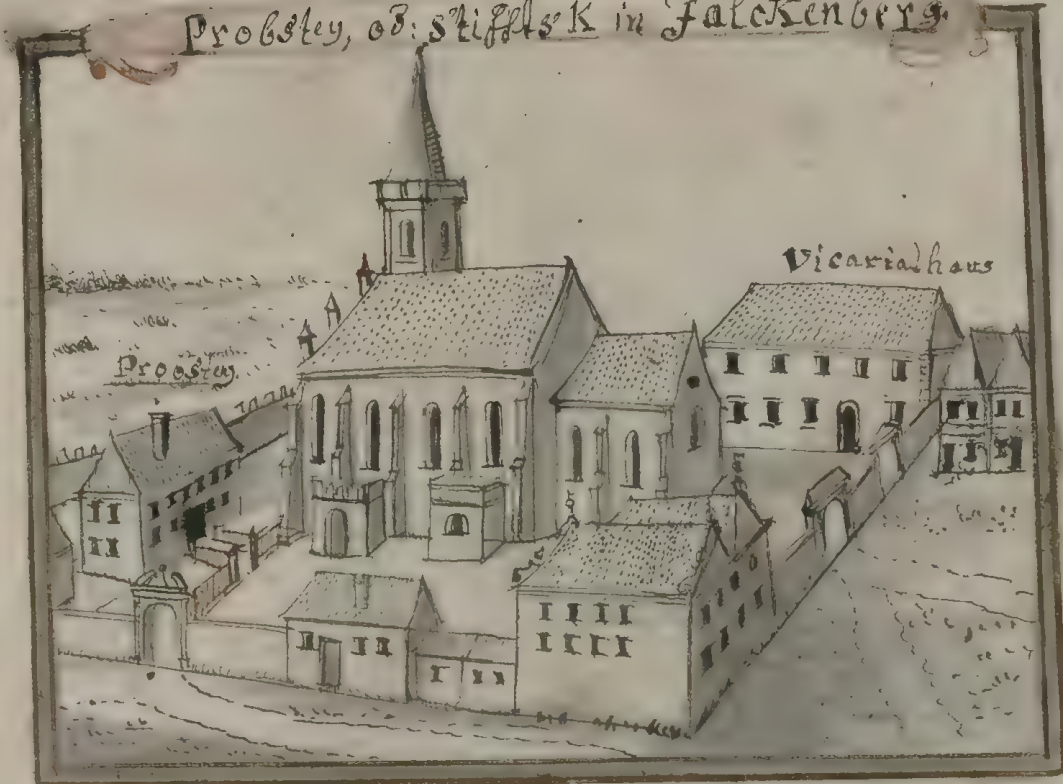 Probstey, od: Stiffts K in Falckenberg.
Vicarialhaus
Probstey.